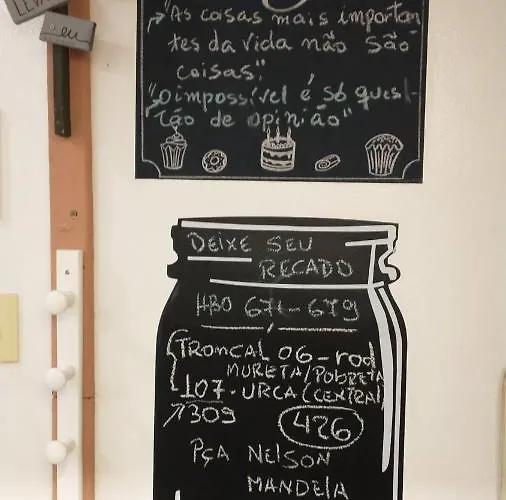 eu
"As coisas mais importan
tes da vida não são
coisas."
"O impossível é só ques-
tão de opinião"
DEIXE SEU
RECADO
HBO 671-679
TRONCAL 06-rod
MURETA/POBRETA
107-URCA (CENTRAL)
309
426
PÇA NELSON
MANDELA